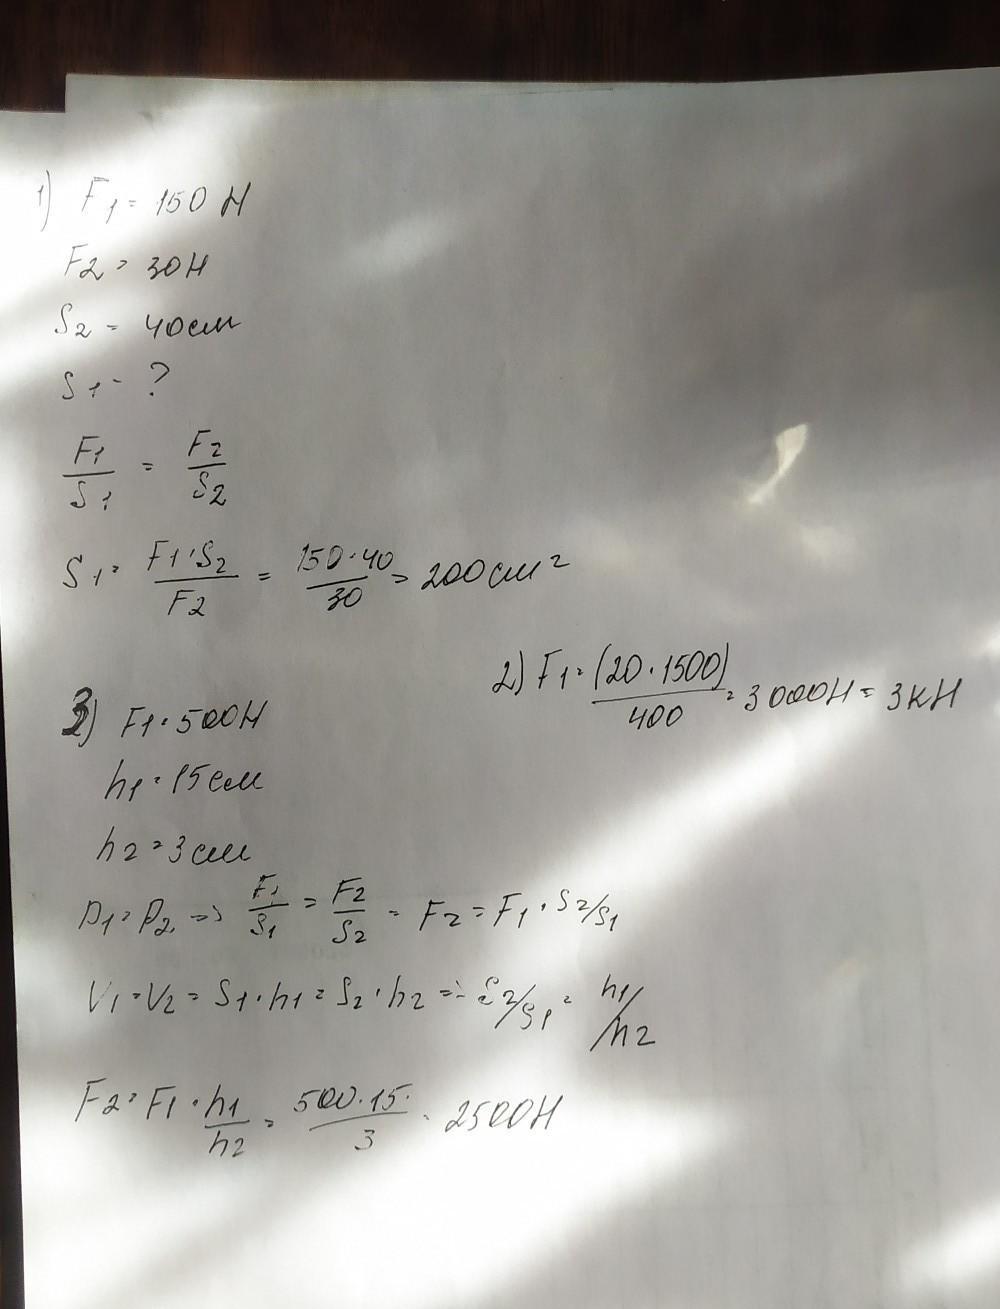 1) F1 = 150 Н
F2 = 30Н
S2 = 40см
S1 - ?
F1/S1 = F2/S2
S1 = F1·S2/F2 = 150·40/30 = 200см²
2) F1 = (20·1500)/400 = 3000Н = 3кН
3) F1 = 500Н
h1 = 15см
h2 = 3см
P1 = P2 => F1/S1 = F2/S2 = F2 = F1 · S2/S1
V1 = V2 = S1·h1 = S2·h2 => S2/S1 = h1/h2
F2 = F1 · h1/h2 = 500·15·/3 = 2500Н